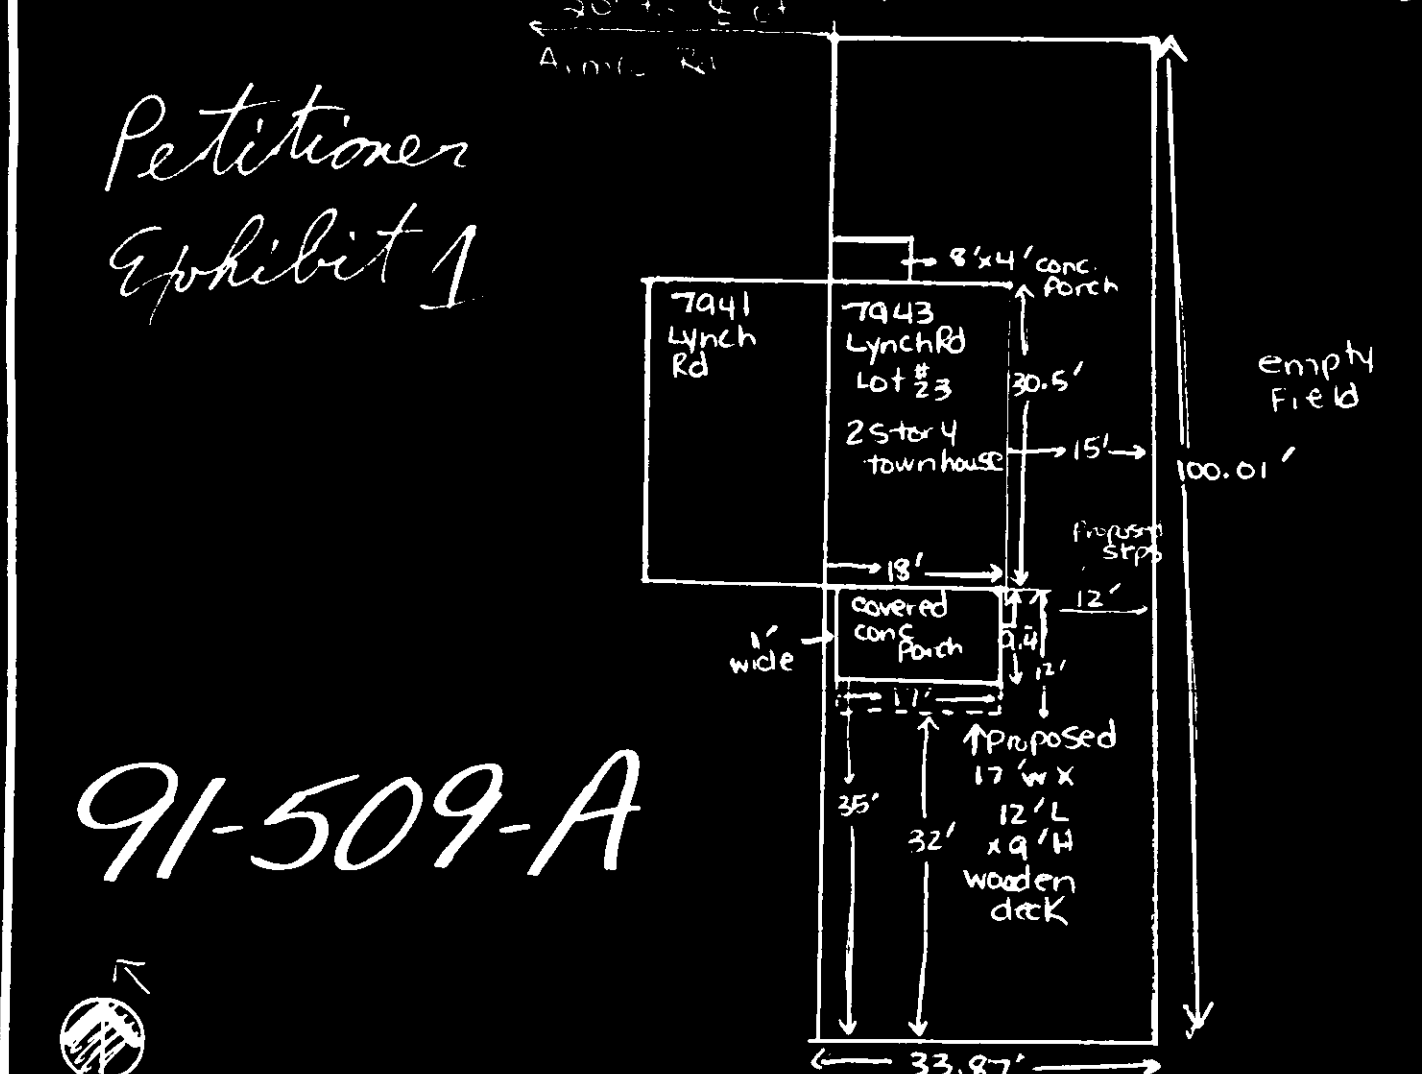 Petitioner
Exhibit 1
8'x4' conc.
Porch
7941
Lynch
Rd
7943
Lynch Rd
Lot #23
2 Story
townhouse
30.5'
15'
empty
Field
100.01'
Proposed
steps
12'
18'
covered
conc
Porch
1'
wide
9.4
12'
17'
Proposed
17'W X
12'L
x9'H
wooden
deck
35'
32'
91-509-A
33.87'